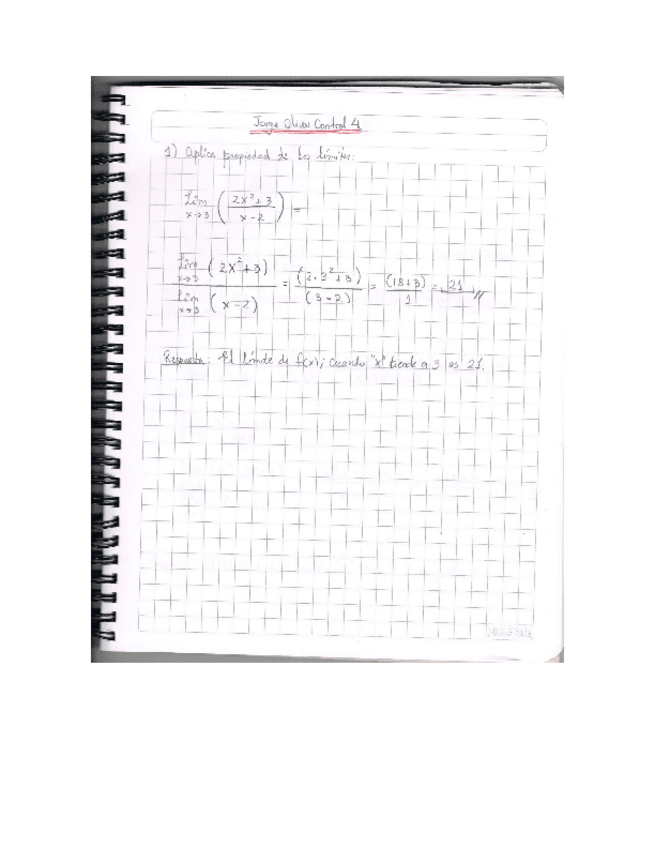 Jorge Olivos Control 4
1) Aplica propiedad de los límites:
Lim x→3 ( 2x² + 3 / x - 2 ) =
Lim x→2 ( 2x² + 3 ) / Lim x→3 ( x - 2 ) = ( 2 · 3² + 3 ) / ( 3 - 2 ) = (18 + 3) / 1 = 21 //
Respuesta: El límite de f(x); cuando "x" tiende a 3 es 21.